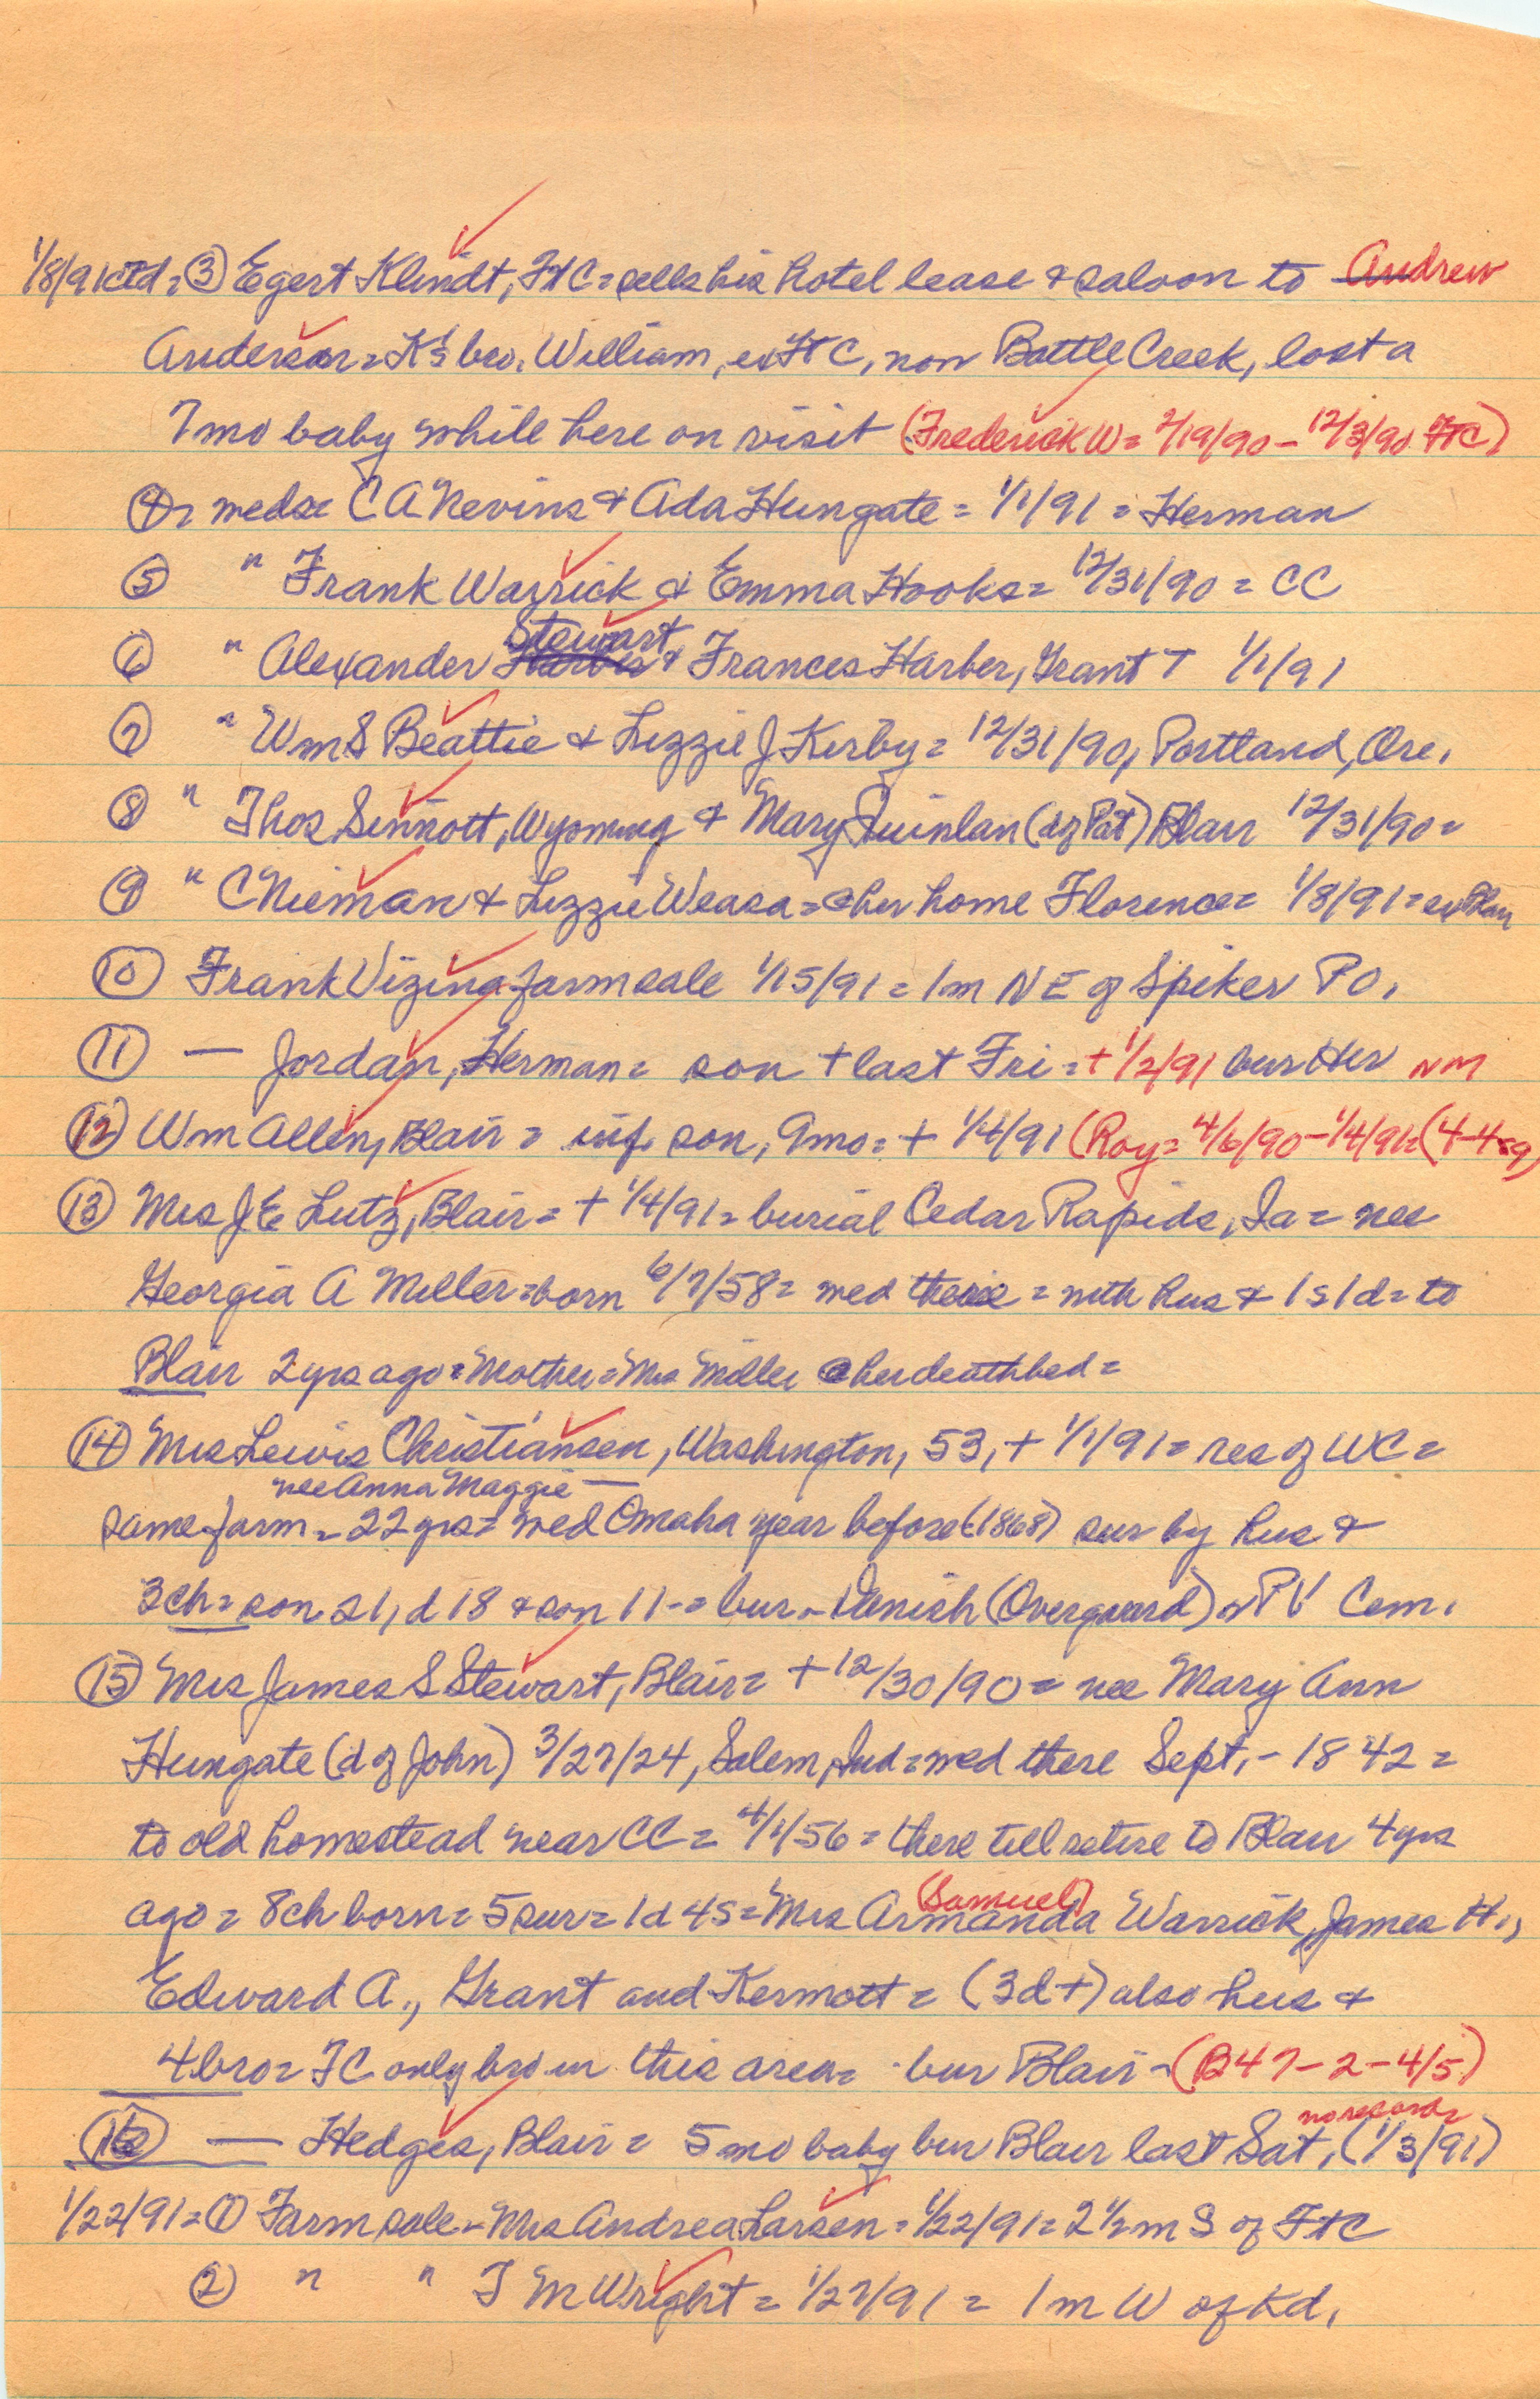 1/8/91 ctd = ③ Egert Klindt, FtC = sells his hotel lease & saloon to Andrew
Anderson = K's bro. William, ex FtC, now Battle Creek, lost a
7 mo baby while here on visit (Frederick W = 2/19/90 - 12/3/90 FTC)
④ = weds = C A Nevins & Ada Hungate = 1/1/91 = Herman
⑤ " Frank Warrick & Emma Hooks = 12/31/90 = CC
⑥ " Alexander Stewart & Frances Harber, Grant T 1/1/91
⑦ " Wm S Beattie & Lizzie J Kerby = 12/31/90, Portland, Ore.
⑧ " Thos Sinnott, Wyoming & Mary Quinlan (d of Pat) Blair 12/31/90 =
⑨ " C Nieman & Lizzie Weasa = @ her home Florence = 1/8/91 = ex Blair
⑩ Frank Vizina farm sale 1/15/91 = 1 m NE of Spiker PO.
⑪ — Jordan, Herman = son + last Fri = + 1/2/91 bur Her NM
⑫ Wm Allen, Blair = inf. son, 9 mo = + 1/4/91 (Roy = 4/6/90 - 1/4/91 = (4-4-
⑬ Mrs J E Lutz, Blair = + 1/4/91 = burial Cedar Rapids, Ia = nee
Georgia A Miller = born 6/7/58 = wed there = with hus & 1 s 1 d = to
Blair 2 yrs ago = Mother = Mrs Miller @ her deathbed =
⑭ Mrs Lewis Christiansen, Washington, 53, + 1/1/91 = res of WC =
nee Anna Maggie —
same farm = 22 yrs = wed Omaha year before (1868) sur by hus &
3 ch = son 21, d 18 & son 11 - = bur - Danish (Overgaard) or PV Cem.
⑮ Mrs James S Stewart, Blair = + 12/30/90 = nee Mary Ann
Hungate (d of John) 3/27/24, Salem, Ind = wed there Sept. - 1842 =
to old homestead near CC = 4/1/56 = there till retire to Blair 4 yrs
(Samuel)
ago = 8 ch born = 5 sur = 1 d 4 s = Mrs Armanda Warrick, James H.,
Edward A., Grant and Kermott = (3 d +) also hus &
4 bro = TC only bro in this area = bur Blair - (B47-2-4/5)
no record =
⑯ — Hedges, Blair = 5 mo baby bur Blair last Sat, (1/3/91)
1/22/91 = ① Farm sale - Mrs Andrea Larsen = 1/22/91 = 2 1/2 m S of FtC
② " " T M Wright = 1/27/91 = 1 m W of Kd.